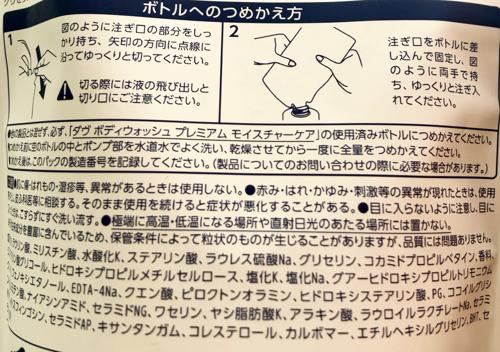 ボトルへのつめかえ方
1
図のように注ぎ口の部分をしっ
かり持ち、矢印の方向に点線に
沿ってゆっくりと切ってください。
切る際には液の飛び出しと
切り口にご注意ください。
2
注ぎ口をボトルに差
し込んで固定し、図
のように両手で持
ち、ゆっくりと注ぎ入
れてください。
●他の製品とは混ぜず、必ず、「ダヴ ボディウォッシュ プレミアム モイスチャーケア」の使用済みボトルにつめかえてください。
つめかえ前に空のボトルの中とポンプ部を水道水でよく洗い、乾燥させてから一度に全量をつめかえてください。
つめかえ後は、このパックの製造番号を記録してください。(製品についてのお問い合わせの際に必要な場合があります。)
●傷・はれもの・湿疹等、異常があるときは使用しない。●赤み・はれ・かゆみ・刺激等の異常が現れたときは、使用
し、皮膚科医等に相談する。そのまま使用を続けると症状が悪化することがある。●目に入らないように注意し、目に
は、こすらずにすぐ洗い流す。●極端に高温・低温になる場所や直射日光のあたる場所には置かない。
成分が豊富に含んでいるため、保管条件によって粒状のものが生じることがありますが、品質には問題ありません。
ラウリン酸、ミリスチン酸、水酸化K、ステアリン酸、ラウレス硫酸Na、グリセリン、コカミドプロピルベタイン、香料、
グリコール、ヒドロキシプロピルメチルセルロース、塩化K、塩化Na、グアーヒドロキシプロピルトリモニウム
エタノール、EDTA-4Na、クエン酸、ピロクトンオラミン、ヒドロキシステアリン酸、PG、ココイルグリシ
ン酸、ナイアシンアミド、セラミドNG、ワセリン、ヤシ脂肪酸K、アラキン酸、ラウロイルラクチレートNa、セラミ
フィンゴシン、セラミドAP、キサンタンガム、コレステロール、カルボマー、エチルヘキシルグリセリン、BHT、セ